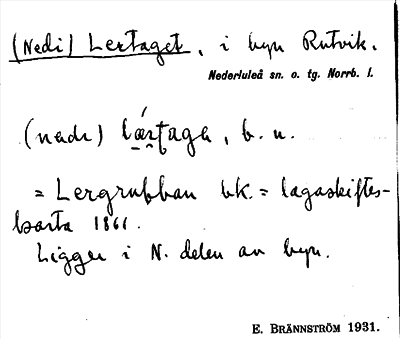 (Nedi) Lertaget, i byn Rutvik.
Nederluleå sn. o. tg. Norrb. l.
(nedi) lǽrtaga, b. n.
= Lergrubban bk. = lagaskiftes-
karta 1861.
Ligger i N. delen av byn.
E. BRÄNNSTRÖM 1931.